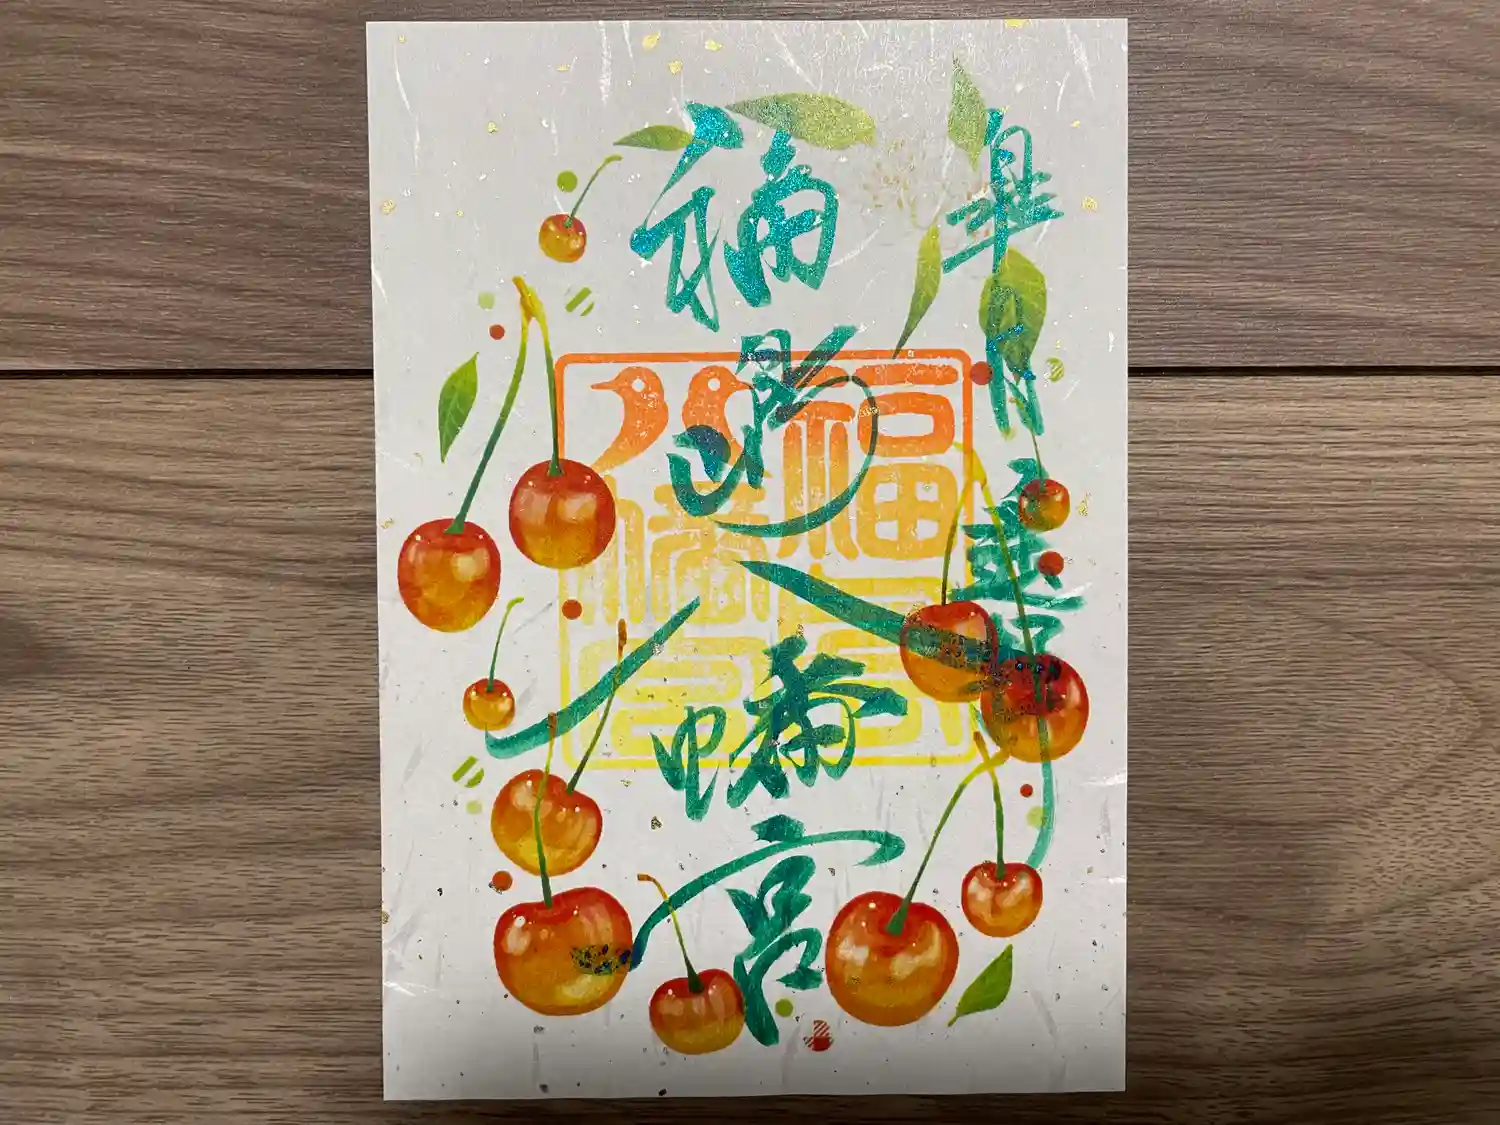 皐月
福島八幡宮
福島
八幡宮